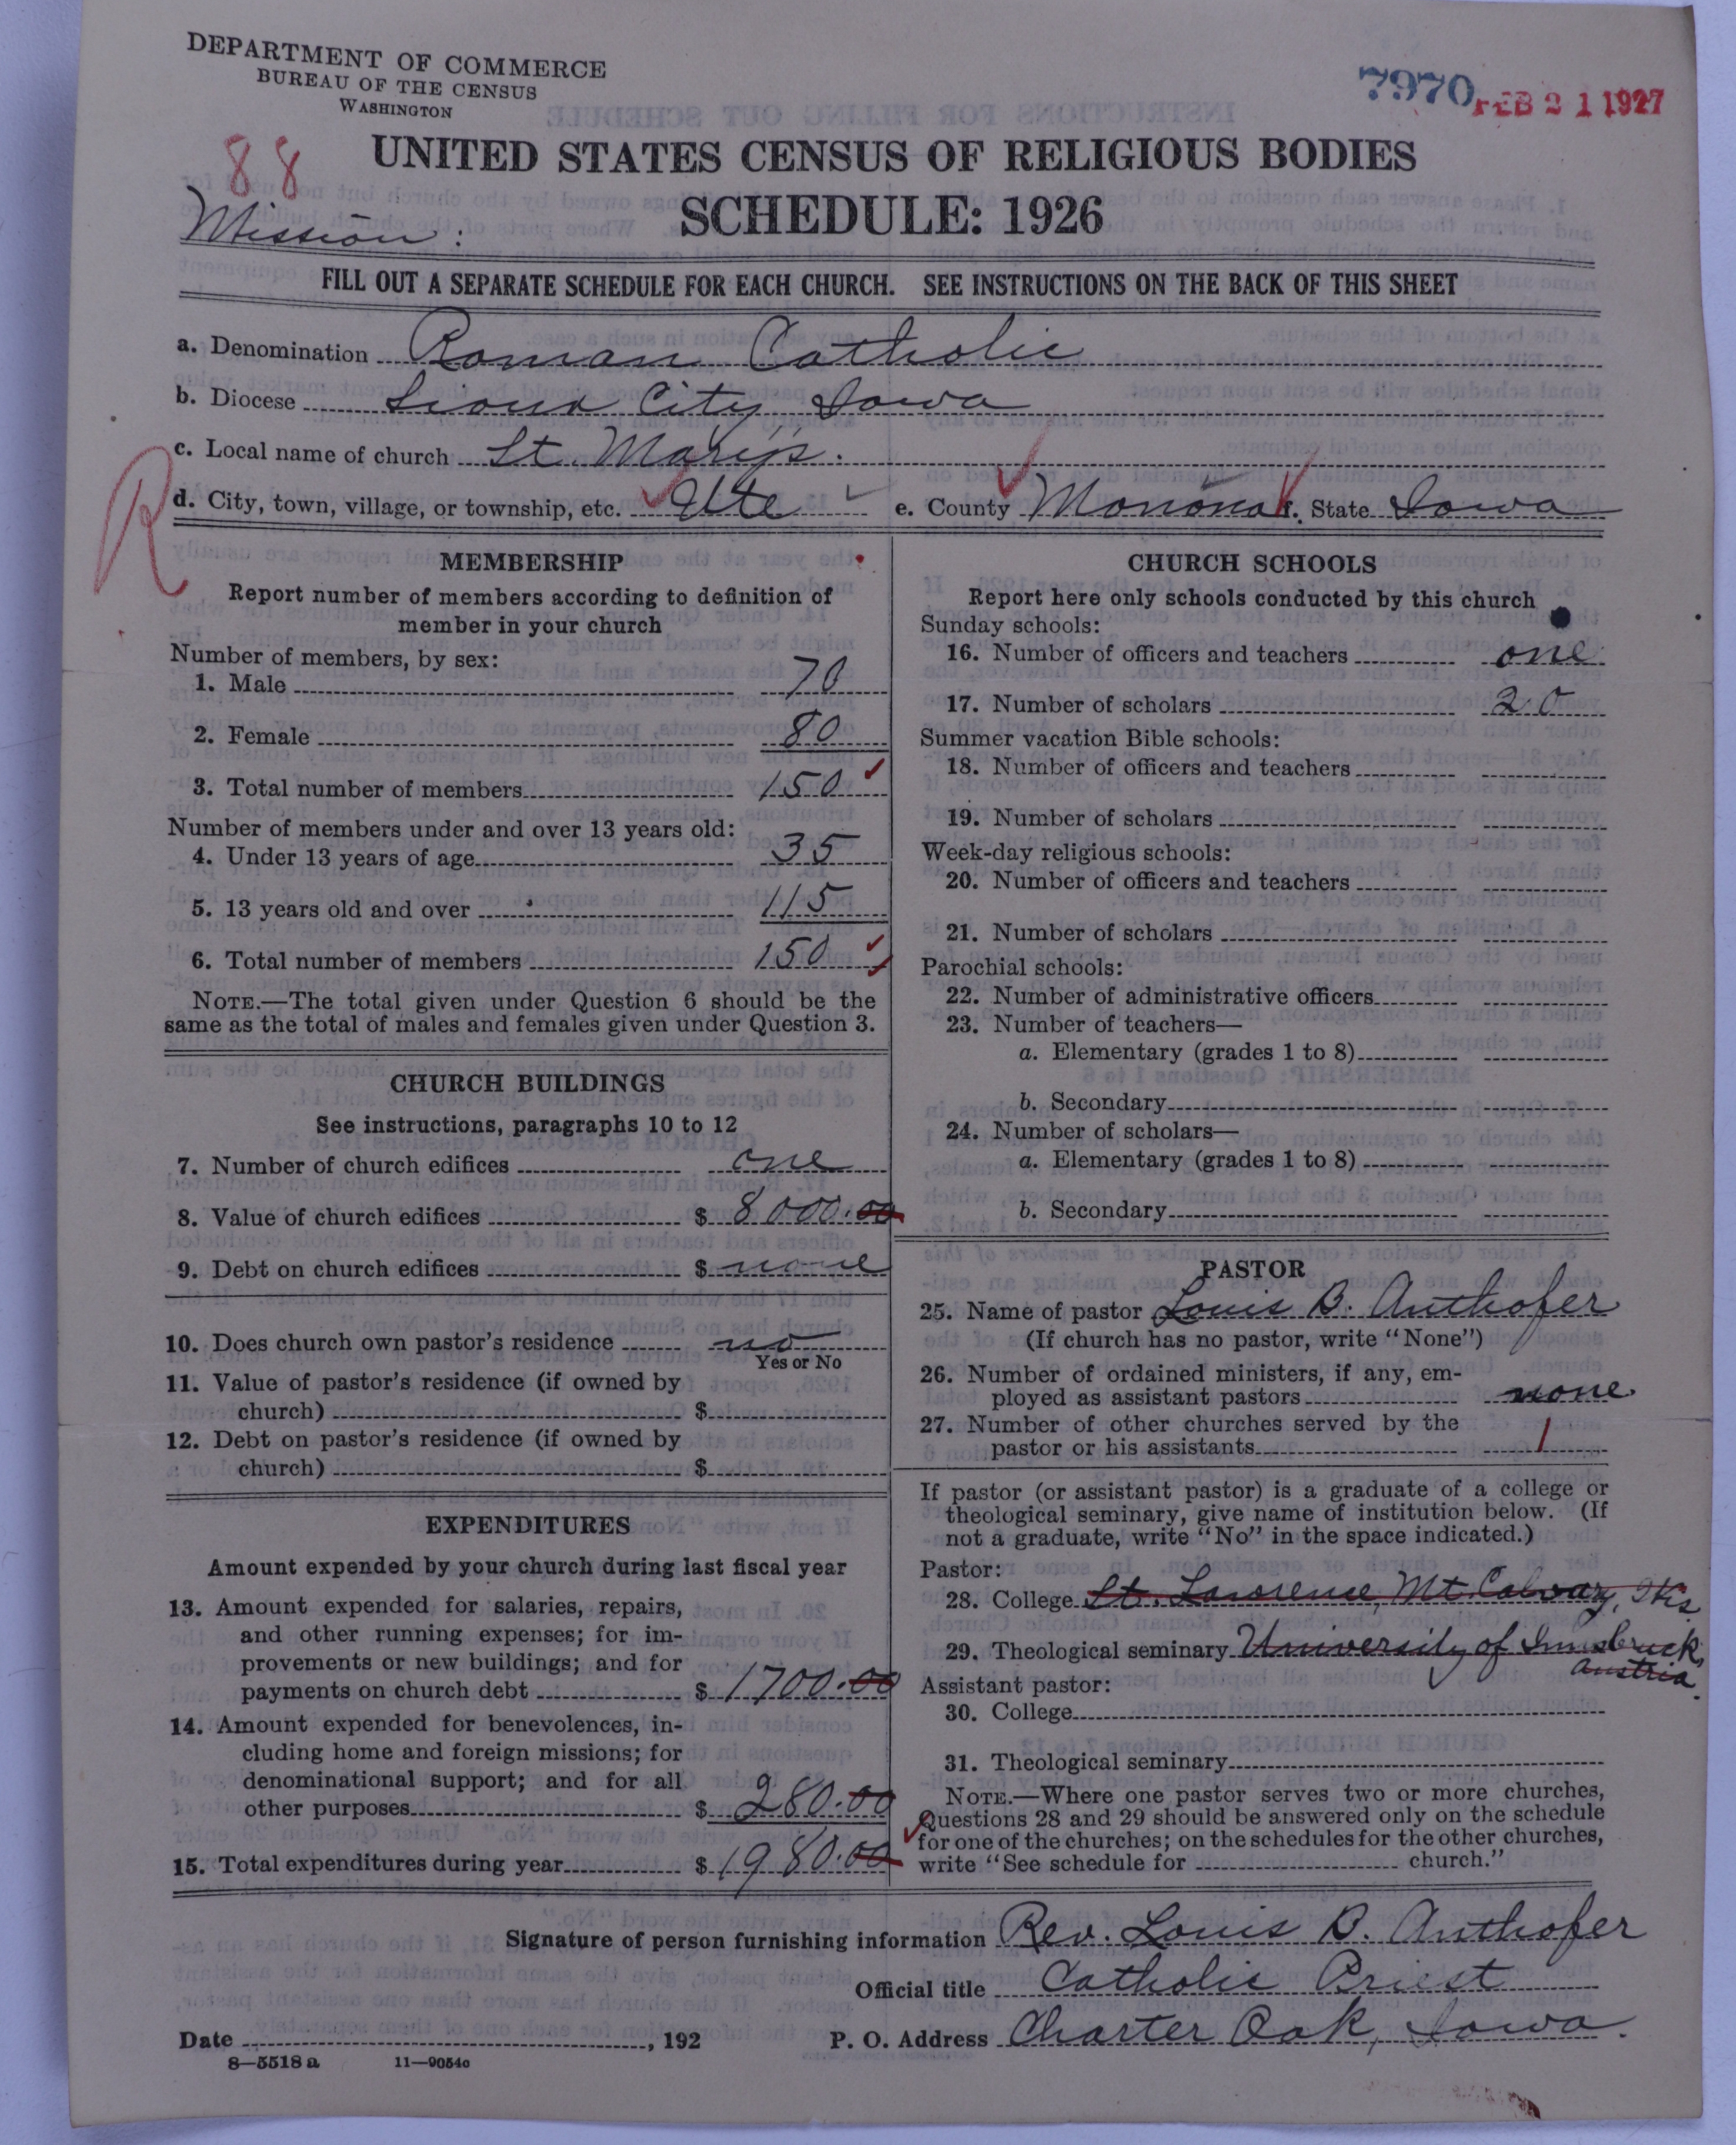 DEPARTMENT OF COMMERCE
BUREAU OF THE CENSUS
WASHINGTON
7970
FEB 21 1927
88
UNITED STATES CENSUS OF RELIGIOUS BODIES
Mission:
SCHEDULE: 1926
FILL OUT A SEPARATE SCHEDULE FOR EACH CHURCH. SEE INSTRUCTIONS ON THE BACK OF THIS SHEET
a. Denomination Roman Catholic
b. Diocese Sioux City, Iowa
c. Local name of church St. Mary's.
R
d. City, town, village, or township, etc. Ute e. County Monona f. State Iowa
MEMBERSHIP
Report number of members according to definition of
member in your church
Number of members, by sex:
1. Male 70
2. Female 80
3. Total number of members 150
Number of members under and over 13 years old:
4. Under 13 years of age 35
5. 13 years old and over 115
6. Total number of members 150
NOTE.—The total given under Question 6 should be the
same as the total of males and females given under Question 3.
CHURCH BUILDINGS
See instructions, paragraphs 10 to 12
7. Number of church edifices one
8. Value of church edifices $ 8000.00
9. Debt on church edifices $ none
10. Does church own pastor's residence no
Yes or No
11. Value of pastor's residence (if owned by
church) $
12. Debt on pastor's residence (if owned by
church) $
EXPENDITURES
Amount expended by your church during last fiscal year
13. Amount expended for salaries, repairs,
and other running expenses; for im-
provements or new buildings; and for
payments on church debt $ 1700.00
14. Amount expended for benevolences, in-
cluding home and foreign missions; for
denominational support; and for all
other purposes $ 280.00
15. Total expenditures during year $ 1980.00
CHURCH SCHOOLS
Report here only schools conducted by this church
Sunday schools:
16. Number of officers and teachers one
17. Number of scholars 20
Summer vacation Bible schools:
18. Number of officers and teachers
19. Number of scholars
Week-day religious schools:
20. Number of officers and teachers
21. Number of scholars
Parochial schools:
22. Number of administrative officers
23. Number of teachers—
a. Elementary (grades 1 to 8)
b. Secondary
24. Number of scholars—
a. Elementary (grades 1 to 8)
b. Secondary
PASTOR
25. Name of pastor Louis B. Anthofer
(If church has no pastor, write "None")
26. Number of ordained ministers, if any, em-
ployed as assistant pastors none.
27. Number of other churches served by the
pastor or his assistants 1
If pastor (or assistant pastor) is a graduate of a college or
theological seminary, give name of institution below. (If
not a graduate, write "No" in the space indicated.)
Pastor:
28. College St. Lawrence, Mt Calvary, Wis
29. Theological seminary University of Innsbruck,
Austria.
Assistant pastor:
30. College
31. Theological seminary
NOTE.—Where one pastor serves two or more churches,
Questions 28 and 29 should be answered only on the schedule
for one of the churches; on the schedules for the other churches,
write "See schedule for church."
Signature of person furnishing information Rev. Louis B. Anthofer
Official title Catholic Priest
Date , 192 P. O. Address Charter Oak, Iowa.
8—5518 a 11—9054c